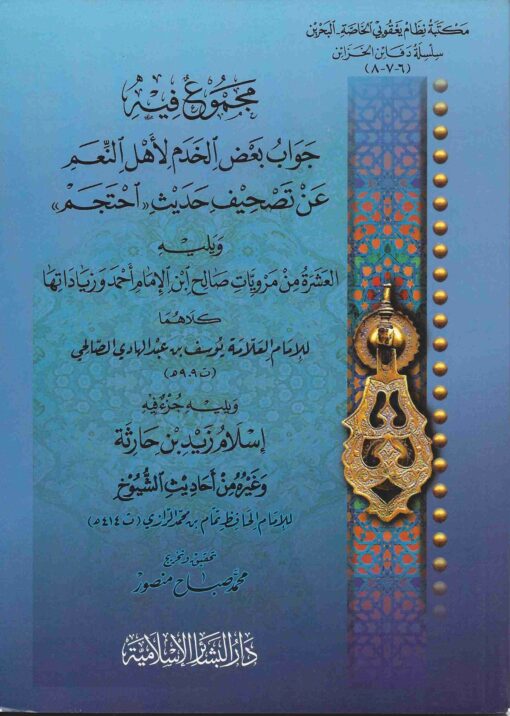 مَكتَبَة نِظَام يَعْقُوبي الخَاصَّة - البَحرين
سِلسِلَة دَفَائِن الخَزَائِن
(٦-٧-٨)
مَجْمُوعٌ فِيهِ
جَوَابُ بَعْضِ الخَدَمِ لِأَهْلِ النِّعَمِ
عَنْ تَصْحِيفِ حَدِيثِ «احْتَجَمَ»
وَيَلِيهِ
العَشَرَةُ مِنْ مَرْوِيَّاتِ صَالِح ابْنِ الإِمَامِ أَحْمَد وَزِيَادَاتِهَا
كِلَاهُمَا
لِلإِمَامِ العَلَّامَة يُوسُف بن عَبْد الهَادِي الصَّالِحِي
(ت ٩٠٩ هـ)
وَيَلِيهِ جُزْءٌ فِيهِ
إِسْلَامُ زَيْدِ بْنِ حَارِثَة
وَغَيْرُهُ مِنْ أَحَادِيثِ الشُّيُوخِ
لِلإِمَامِ الحَافِظِ تَمَّام بن مُحَمَّد الرَّازِي (ت ٤١٤ هـ)
تحقيق وتخريج
محمَّد صباح منصور
دَارُ البَشَائِرِ الإِسْلَامِيَّة